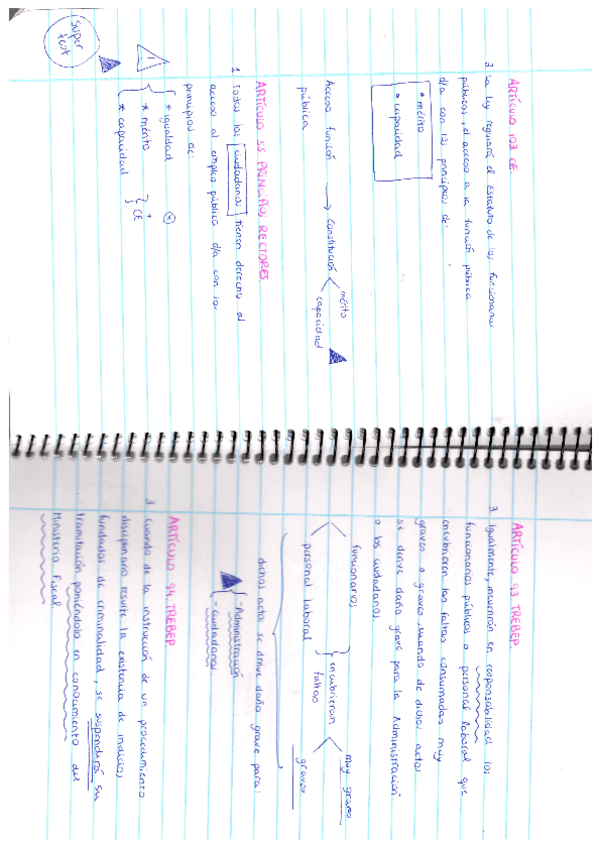 ARTÍCULO 103 CE
3. La ley regulará el Estatuto de los funcionarios
públicos, el acceso a la función pública
d/a con los principios de:
* mérito
* capacidad
Acceso función → Constitución < mérito
capacidad
pública
ARTÍCULO 55 PRINCIPIOS RECTORES
1. Todos los ciudadanos tienen derecho al
acceso al empleo público d/a con los
principios de:
* igualdad
* mérito
* capacidad
} + CE
!
super
test
ARTÍCULO 93 TREBEP
3. Igualmente, incurrirán en responsabilidad los
funcionarios públicos o personal laboral que
encubrieren las faltas consumadas muy
graves o graves, cuando de dichos actos
se derive daño grave para la Administración
o los ciudadanos
funcionarios
personal laboral
} encubrieran
faltas
< muy graves
graves
dichos actos se derive daño grave para:
- Administración
- ciudadanos
ARTÍCULO 94. TREBEP
3. Cuando de la instrucción de un procedimiento
disciplinario resulte la existencia de indicios
fundados de criminalidad, se suspenderá su
tramitación poniéndolo en conocimiento del
Ministerio Fiscal.